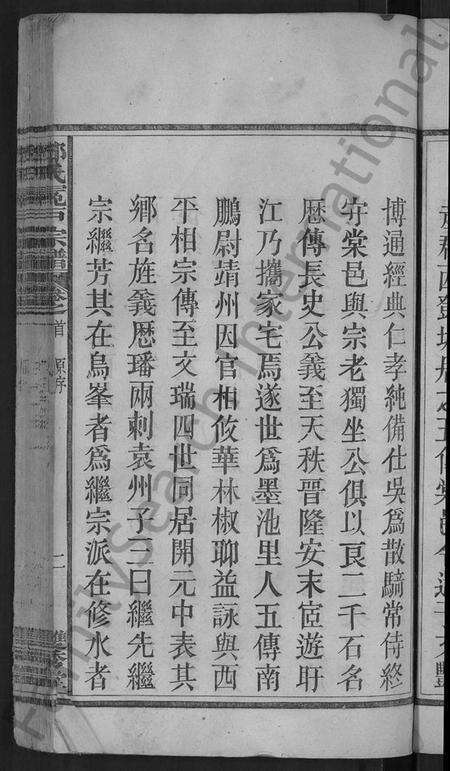 博通經典仁孝純備仕吳爲散騎常侍終
守棠邑與宗老獨坐公俱以良二千石名
厯傳長史公義至天秩晉隆安末宦遊盱
江乃攜家宅焉遂世爲墨池里人五傳南
鵬尉靖州因官相攸華林椒聊益詠與西
平相宗傳至文瑞四世同居開元中表其
鄉名旌義厯璠兩刺袁州子三曰繼先繼
宗繼芳其在烏峯者爲繼宗派在修水者
宗譜
卷之首 原序
二
FamilySearch International